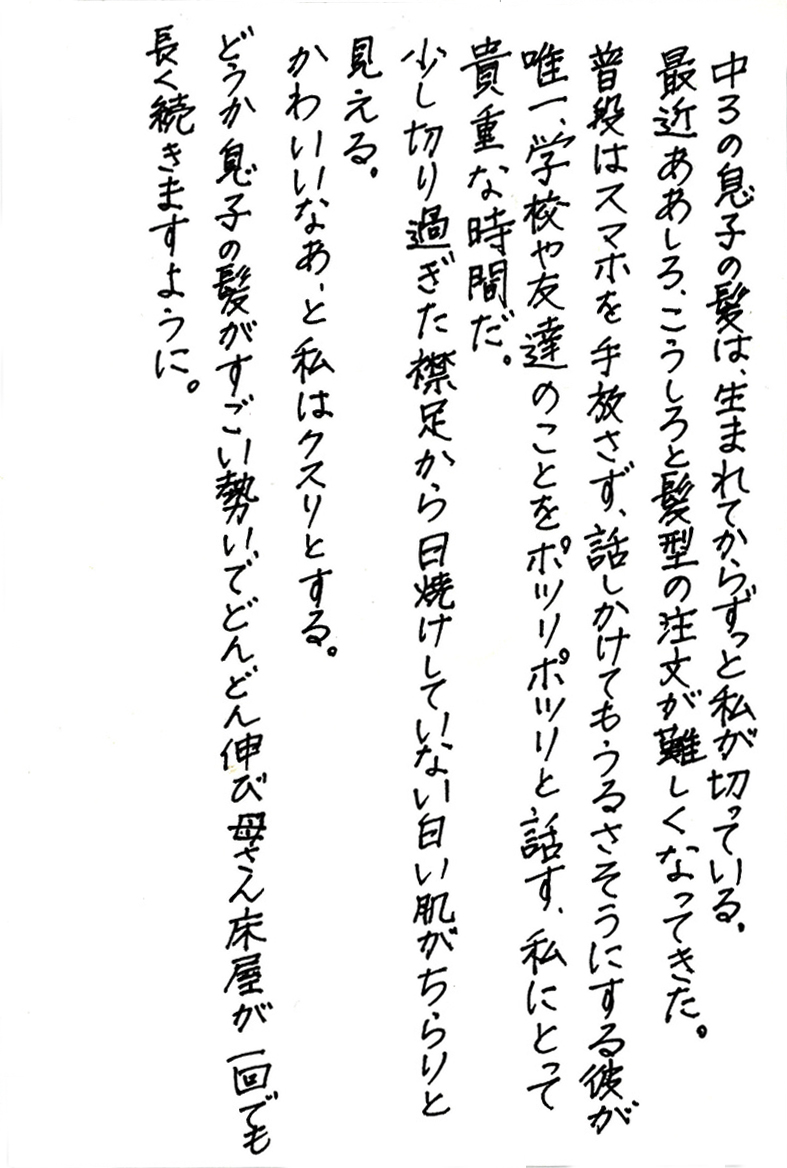 中3の息子の髪は、生まれてからずっと私が切っている。
最近ああしろ、こうしろと髪型の注文が難しくなってきた。
普段はスマホを手放さず、話しかけてもうるさそうにする彼が
唯一、学校や友達のことをポツリポツリと話す、私にとって
貴重な時間だ。
少し切り過ぎた襟足から日焼けしていない白い肌がちらりと
見える。
かわいいなあ、と私はクスリとする。
どうか息子の髪がすごい勢いでどんどん伸び母さん床屋が一回でも
長く続きますように。